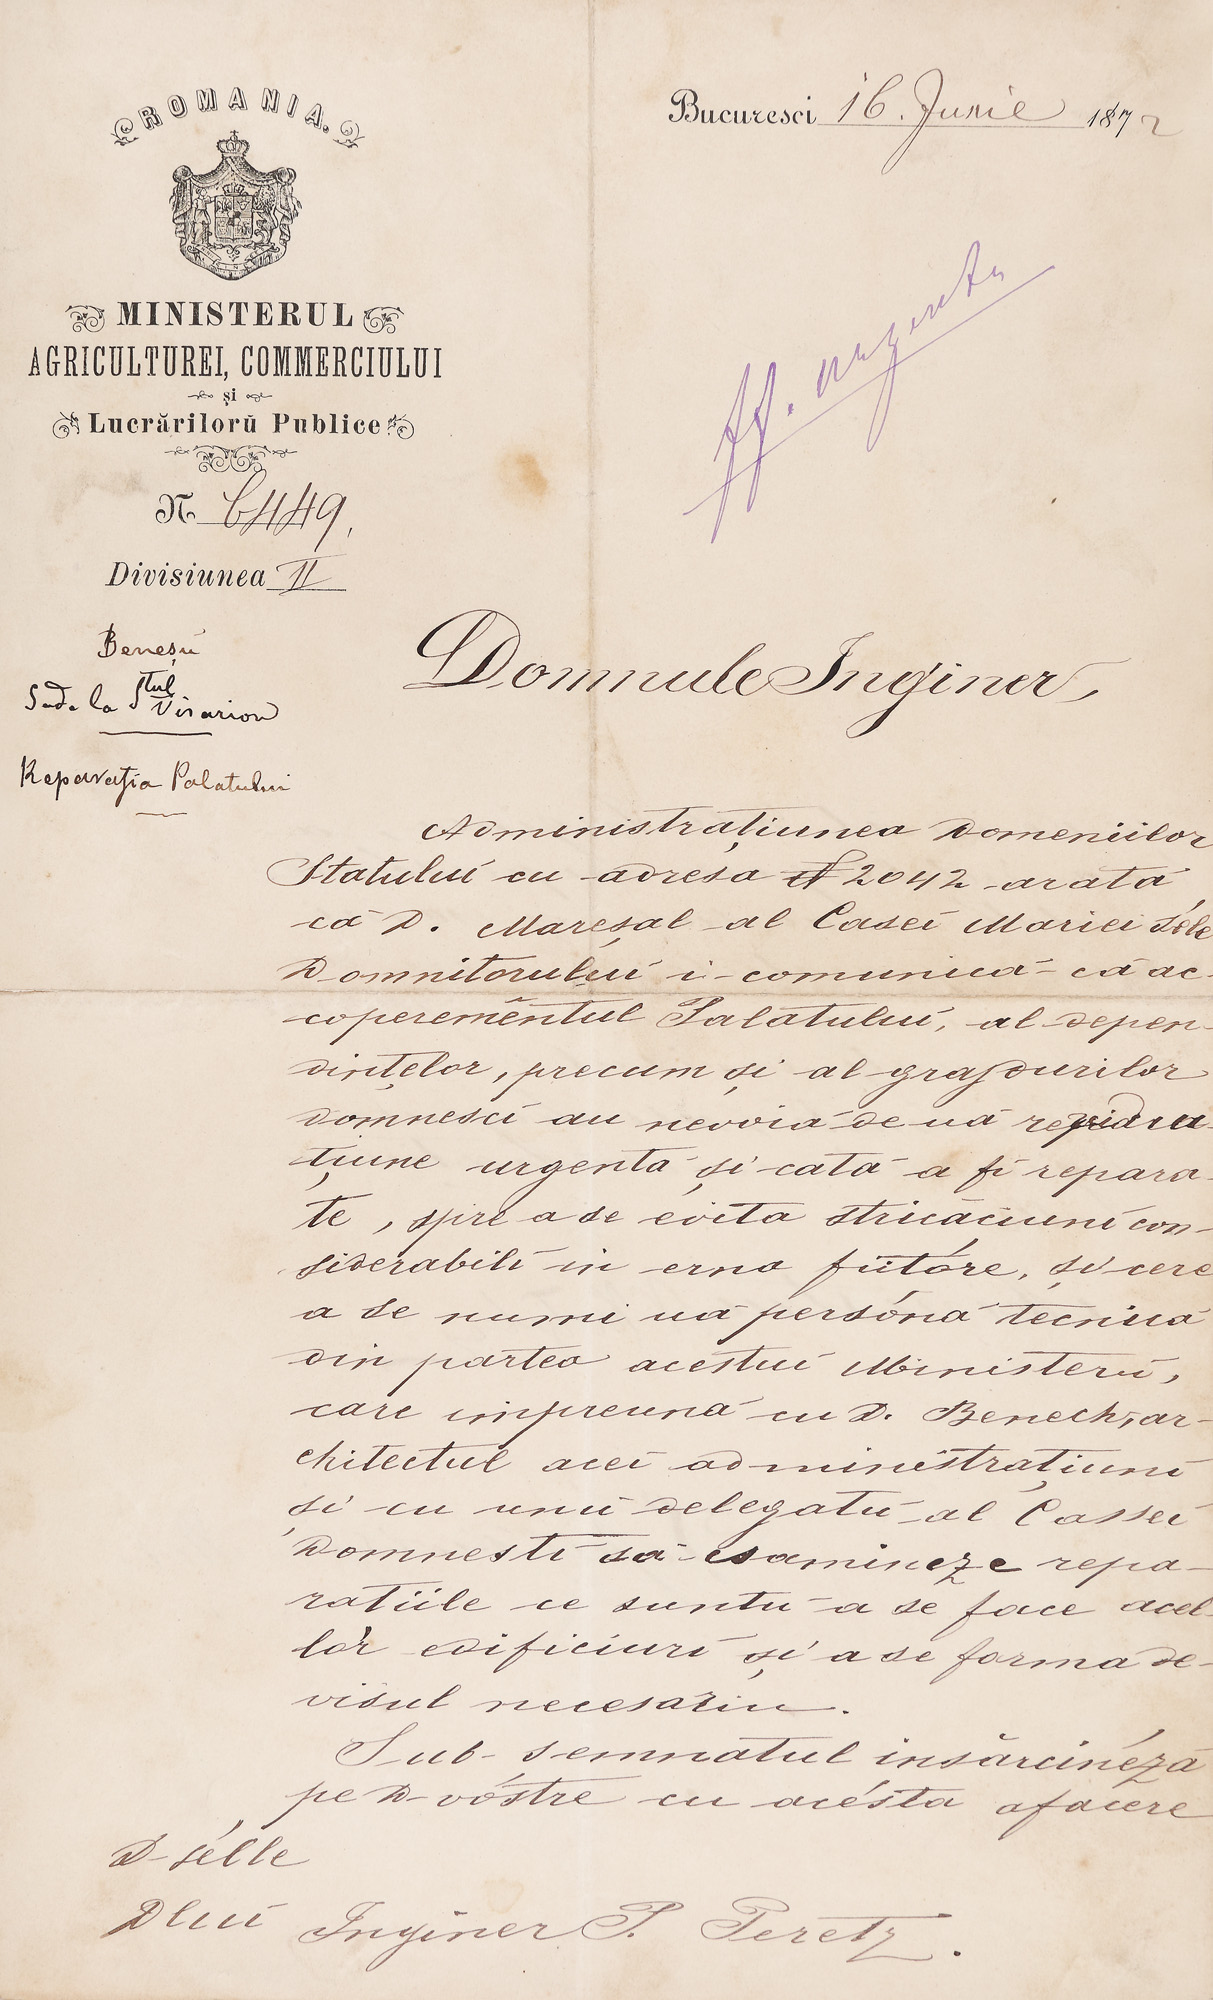 ROMANIA.
MINISTERUL
AGRICULTUREI, COMMERCIULUI
și
Lucrărilorŭ Publice
N. 6449.
Divisiunea II
Bucuresci 16. Junie 1872
ff. urgentu
Beneșŭ
Sade la Stul
Visarion
Reparația Palatului
Domnule Inginer,
Administrațiunea Domeniilor
Statului cu adresa N 2042 arată
că D. Mareșal al Casei Măriei Séle
Domnitorului i comunică că ac-
coperemĕntul Palatului, al depen-
dințelor, precum și al grajdurilor
domnesci au nevoiă de uă repara-
țiune urgentă și cată a fi repara-
te, spre a se evita stricăciuni con-
siderabili in erna fiitóre, și cere
a se numi uă persónă tecnică
din partea acestui Ministeriŭ,
care impreună cu D. Benech, ar-
chitectul acei administrațiuni
și cu unŭ delegatŭ al Cassei
Domnesti să esamineze repa-
rațiile ce suntŭ a se face acel-
lor edificiuri și a se forma de-
visul necesariu.
Sub-semnatul insărcinéză
pe D-vóstre cu acésta afacere
D-séle
Dlui Inginer P. Peretz.